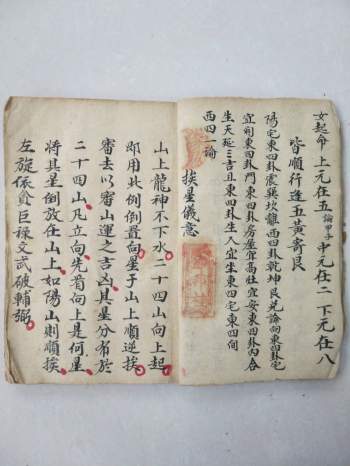 女起命上元在五論甲子中元在二下元在八
皆順行逢五黄寄艮
陽宅東四卦震巽坎離西四卦乾坤艮兑論向東四卦宅
宜向東四卦門東四卦房屋宜高壯宜安東四卦內合
生天延三吉且東四卦生人宜坐東四宅東四向
西四一論
挨星儀意
山上龍神不下水二十四山向上起
即用此例倒置向星子山上順逆挨
審去以審山運之吉凶其星分布於
二十四山凡立向先看向上是何星
將其星倒放在山上如陽山則順挨
左旋依貪巨祿文武破輔弼